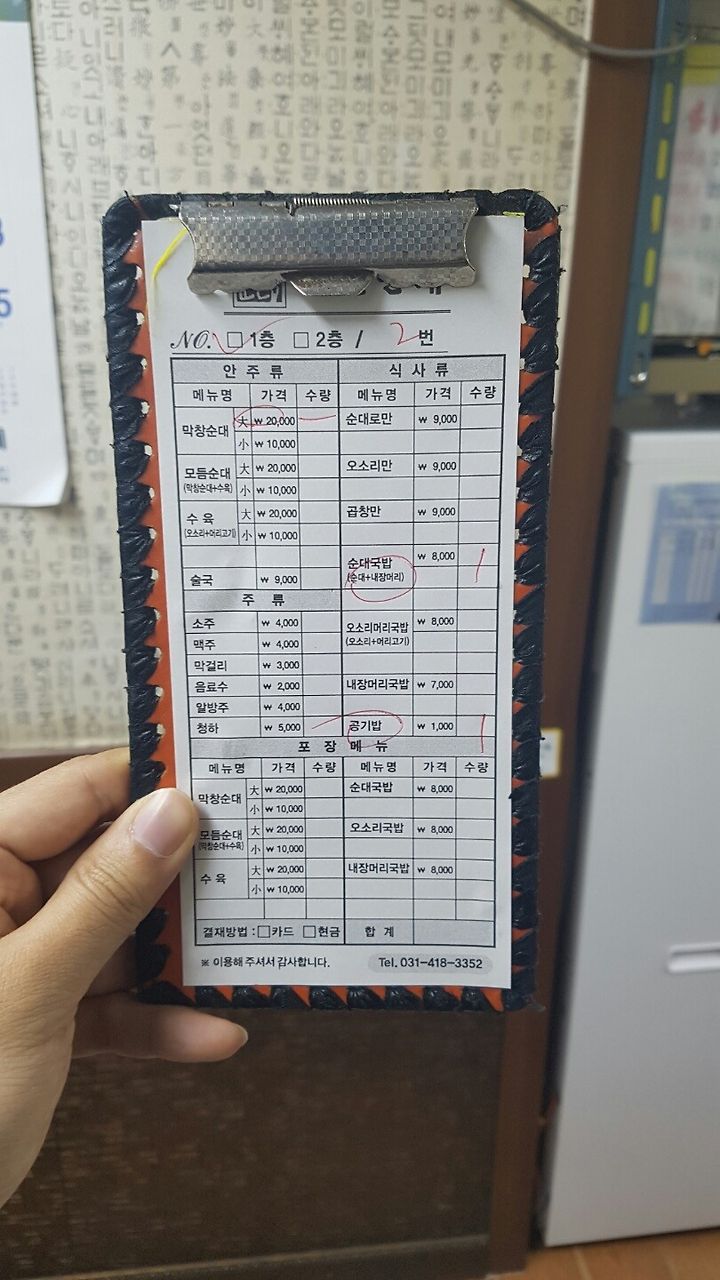 NO. □ 1층 □ 2층 / 2번
안 주 류 식 사 류
메뉴명 가격 수량 메뉴명 가격 수량
막창순대 大 ₩ 20,000 순대로만 ₩ 9,000
小 ₩ 10,000
모듬순대 (막창순대+수육) 大 ₩ 20,000 오소리만 ₩ 9,000
小 ₩ 10,000
수 육 (오소리+머리고기) 大 ₩ 20,000 곱창만 ₩ 9,000
小 ₩ 10,000
순대국밥 (순대+내장머리) ₩ 8,000
술국 ₩ 9,000
주 류
소주 ₩ 4,000 오소리머리국밥 (오소리+머리고기) ₩ 8,000
맥주 ₩ 4,000
막걸리 ₩ 3,000
음료수 ₩ 2,000 내장머리국밥 ₩ 7,000
알방주 ₩ 4,000
청하 ₩ 5,000 공기밥 ₩ 1,000
포 장 메 뉴
메뉴명 가격 수량 메뉴명 가격 수량
막창순대 大 ₩ 20,000 순대국밥 ₩ 8,000
小 ₩ 10,000
모듬순대 (막창순대+수육) 大 ₩ 20,000 오소리국밥 ₩ 8,000
小 ₩ 10,000
수 육 大 ₩ 20,000 내장머리국밥 ₩ 8,000
小 ₩ 10,000
결재방법 : □카드 □현금 합 계
※ 이용해 주셔서 감사합니다. Tel. 031-418-3352